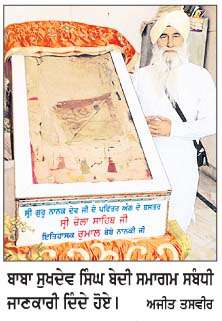 ਸ੍ਰੀ ਗੁਰੂ ਨਾਨਕ ਦੇਵ ਜੀ ਦੇ ਪਵਿੱਤਰ ਅੰਗ ਦੇ ਬਸਤਰ
ਸ੍ਰੀ ਚੋਲਾ ਸਾਹਿਬ ਜੀ
ਇਤਿਹਾਸਕ ਰੁਮਾਲ ਬੇਬੇ ਨਾਨਕੀ ਜੀ
ਬਾਬਾ ਸੁਖਦੇਵ ਸਿੰਘ ਬੇਦੀ ਸਮਾਗਮ ਸਬੰਧੀ
ਜਾਣਕਾਰੀ ਦਿੰਦੇ ਹੋਏ। ਅਜੀਤ ਤਸਵੀਰ